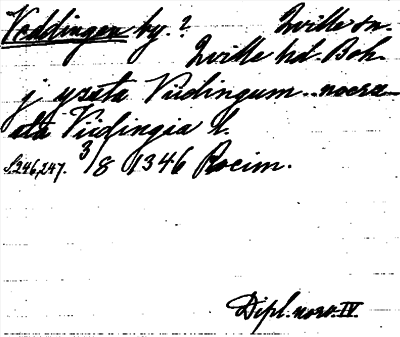 Vaddingen by.? Tville sn.
Tville hd. Boh.
j yzsta Viidingum.. nørra
ata Viidingia l.
S. 246,247. 3/8 1346 Rocim.
Dipl. norv. IV.